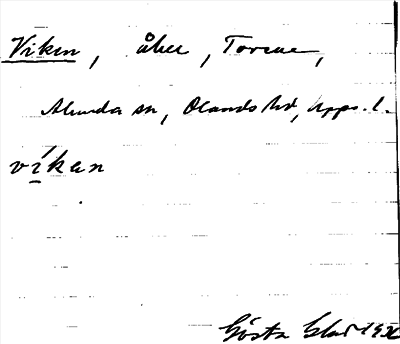 Viken, åker, Torvne,
Alunda sn, Olands hd, Upps. l.
víkan
Gösta